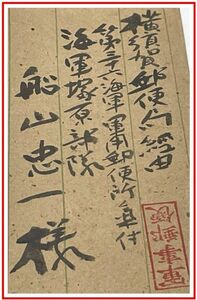 横須賀郵便局経由
第三十六海軍軍用郵便所気付
海軍塚原部隊
船山忠一様
軍事郵便